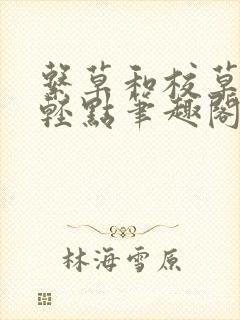 繫草和校草
輕點筆趣閣
林海雪原